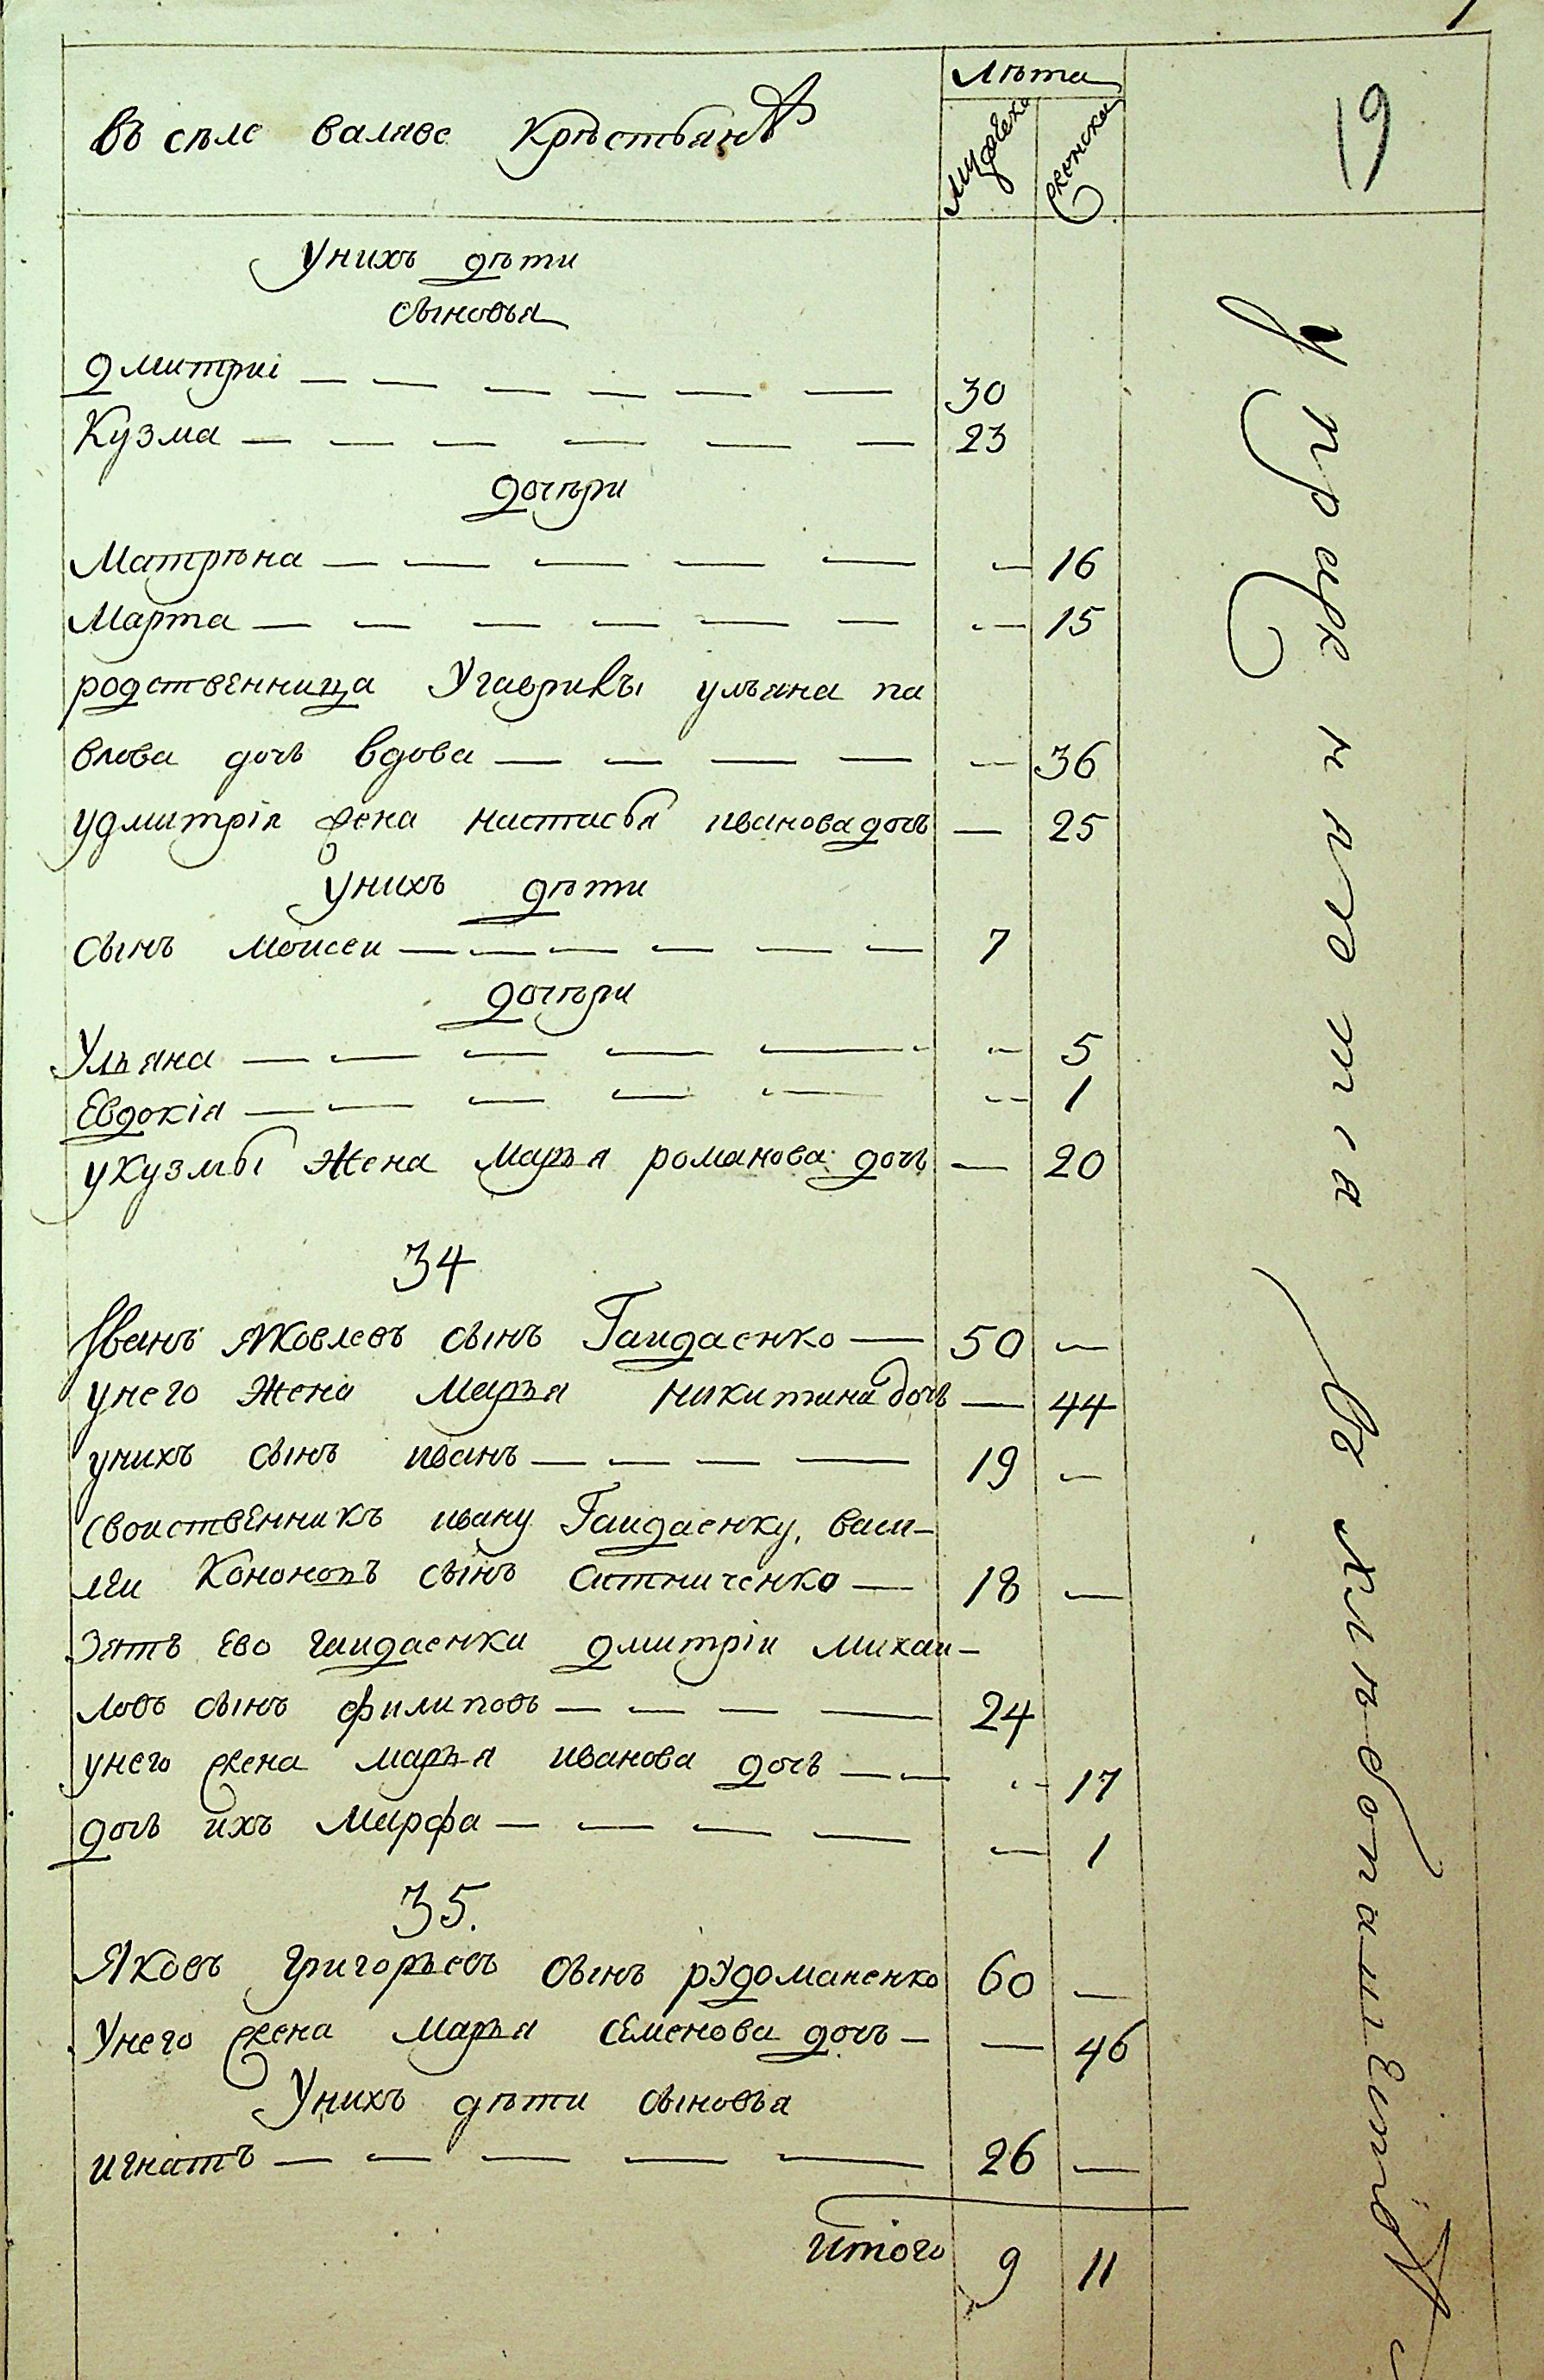 Въ сѣле валяве Крѣстьянъ
Лѣта
Мужеска
женска
19
Унихъ дѣти
сыновья
Дмитриі 30
Кузма 23
дочѣри
Матрѣна 16
Марта 15
родственница Угаврикы ульяна па
влова дочь вдова 36
удмитрія жена настасья иванова дочь 25
Унихъ дѣти
сынъ моисеи 7
дочѣри
Ульяна 5
Евдокія 1
укузмы жена Марья романова дочь 20
34
Іванъ яковлевъ сынъ Гаидаенко 50
унего жена Марья никитина дочь 44
унихъ сынъ иванъ 19
своиственникъ ивану Гаидаенку, васи-
леи Кононовъ сынъ ситниченко 18
Зять Ево гаидаенки дмитріи михаи-
ловъ сынъ филиповъ 24
унего жена марья иванова дочь 17
дочь ихъ Марфа 1
35.
Яковъ григорьевъ сынъ рудоманенко 60
Унего жена Марья семенова дочь 46
Унихъ дѣти сыновья
игнатъ 26
итого 9 11